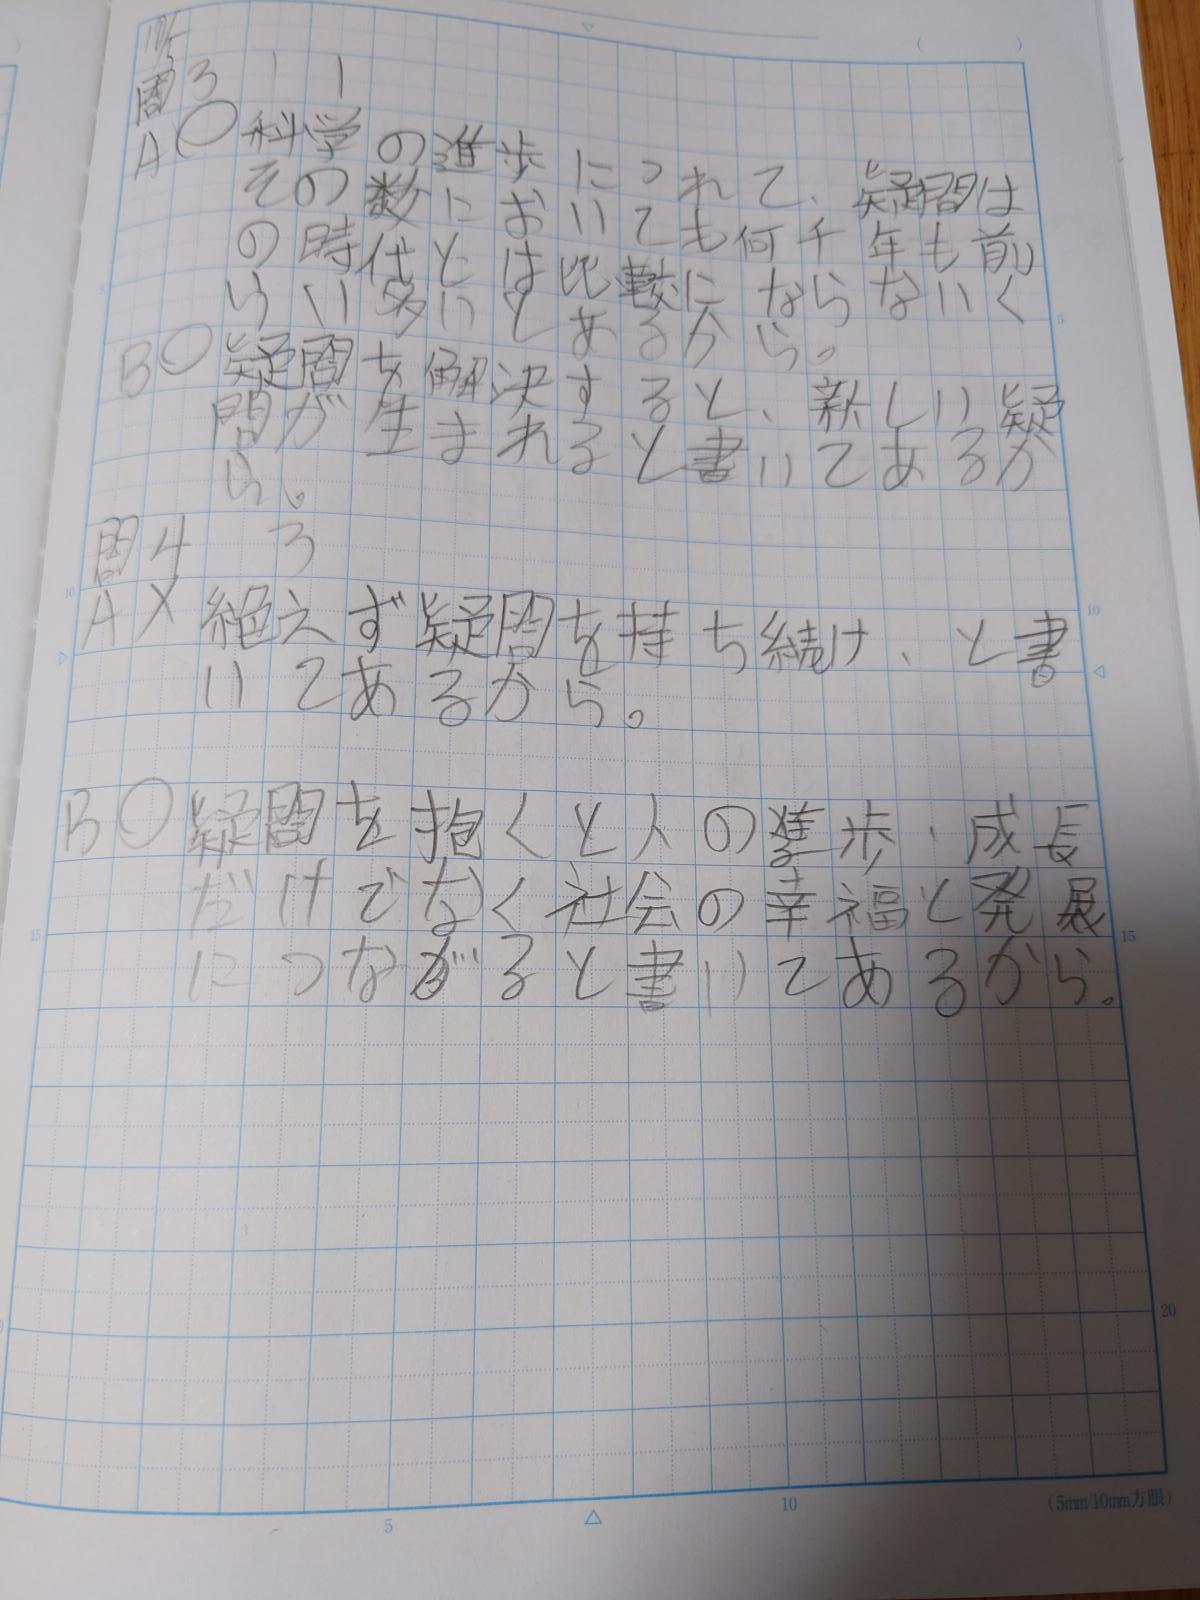 問3 1
A〇科学の進歩につれて、疑問は
その数においても何千年も前
の時代とは比較にならないく
らい多いとあるから。
B〇疑問を解決すると、新しい疑
問が生まれると書いてあるか
ら。
問4 3
A× 絶えず疑問を持ち続け、と書
いてあるから。
B〇疑問を抱くと人の進歩・成長
だけでなく社会の幸福と発展
につながると書いてあるから。
5
10
15
20
10
15
5
10
(5mm/10mm方眼)